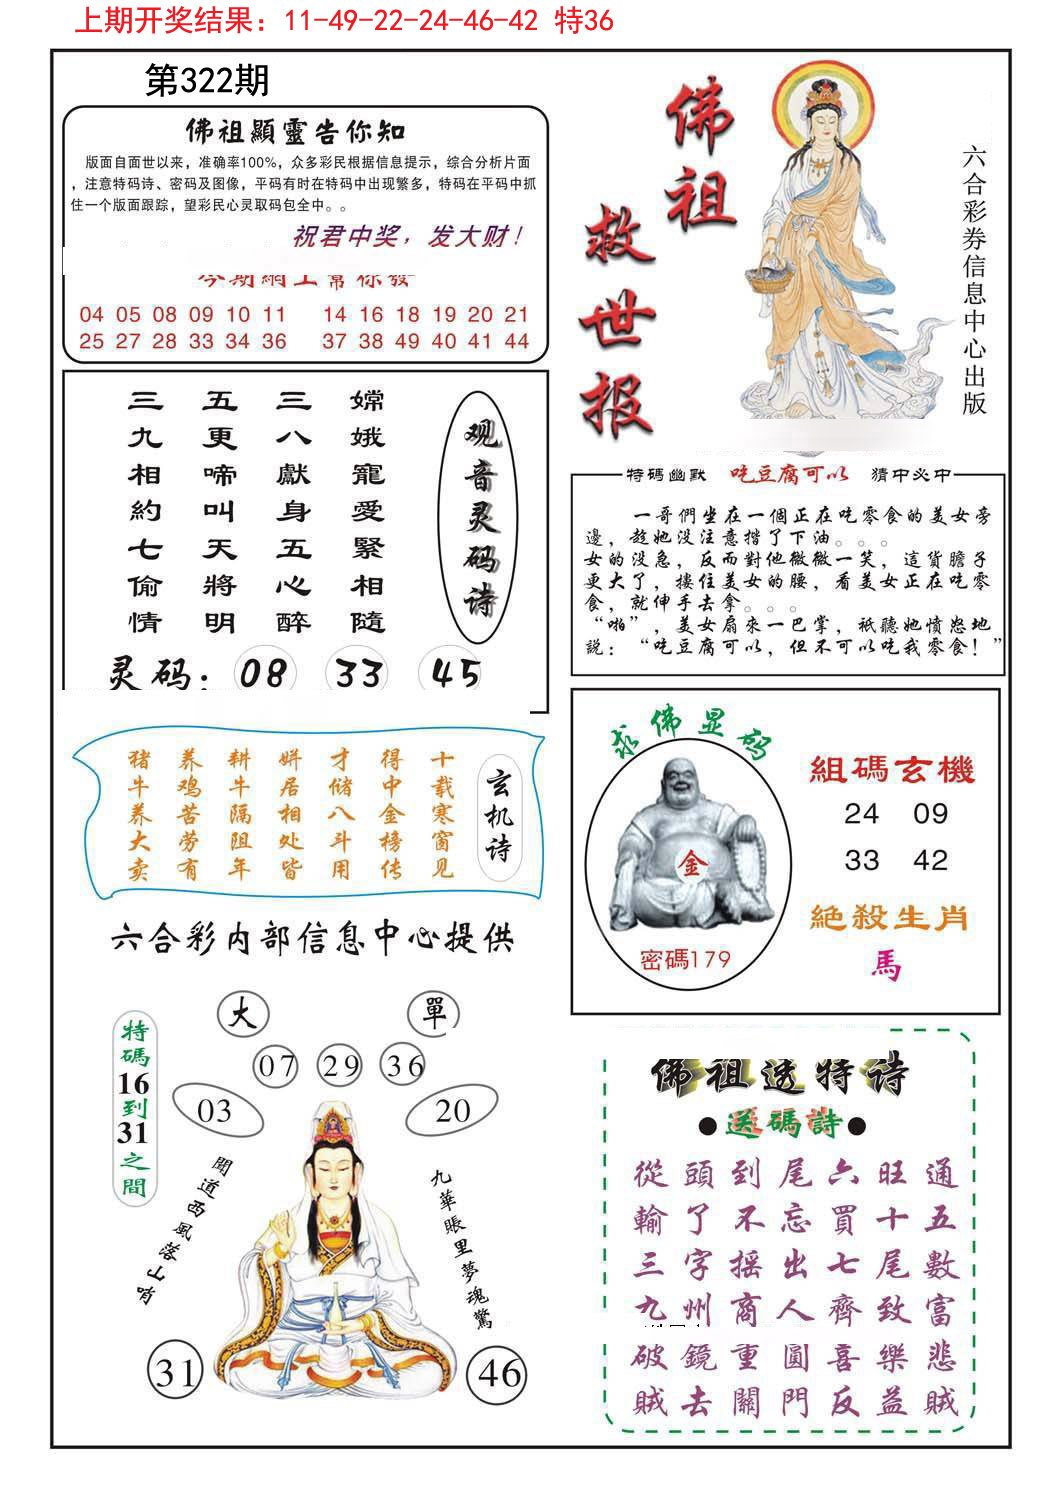 上期开奖结果：11-49-22-24-46-42 特36
第322期
佛祖顯靈告你知
版面自面世以来，准确率100%，众多彩民根据信息提示，综合分析片面
，注意特码诗、密码及图像，平码有时在特码中出现繁多，特码在平码中抓
住一个版面跟踪，望彩民心灵取码包全中。。
祝君中奖，发大财！
今期網上幫你發
04 05 08 09 10 11 14 16 18 19 20 21
25 27 28 33 34 36 37 38 49 40 41 44
佛祖
救世报
六合彩券信息中心出版
观音灵码诗
嫦娥寵愛緊相隨
三八獻身五心醉
五更啼叫天將明
三九相約七偷情
灵码：08 33 45
特碼幽默 吃豆腐可以 猜中必中
一哥們坐在一個正在吃零食的美女旁
邊，趁她没注意揩了下油。。。
女的没急，反而對他微微一笑，這貨膽子
更大了，摟住美女的腰，看美女正在吃零
食，就伸手去拿。。。
“啪”，美女扇來一巴掌，祇聽她憤怒地
説：“吃豆腐可以，但不可以吃我零食！”
玄机诗
十载寒窗见
得中金榜传
才储八斗用
姘居相处皆
耕牛隔阻年
养鸡苦劳有
猪牛养大卖
六合彩内部信息中心提供
求佛显码
金
密碼179
組碼玄機
24 09
33 42
絶殺生肖
馬
大 單
07 29 36
03 20
特碼16到31之間
聞道西風落山哨
九華賬里夢魂驚
31 46
佛祖透特诗
●送碼詩●
從頭到尾六旺通
輸了不忘買十五
三字摇出七尾數
九州商人齊致富
破鏡重圓喜樂悲
賊去關門反益賊